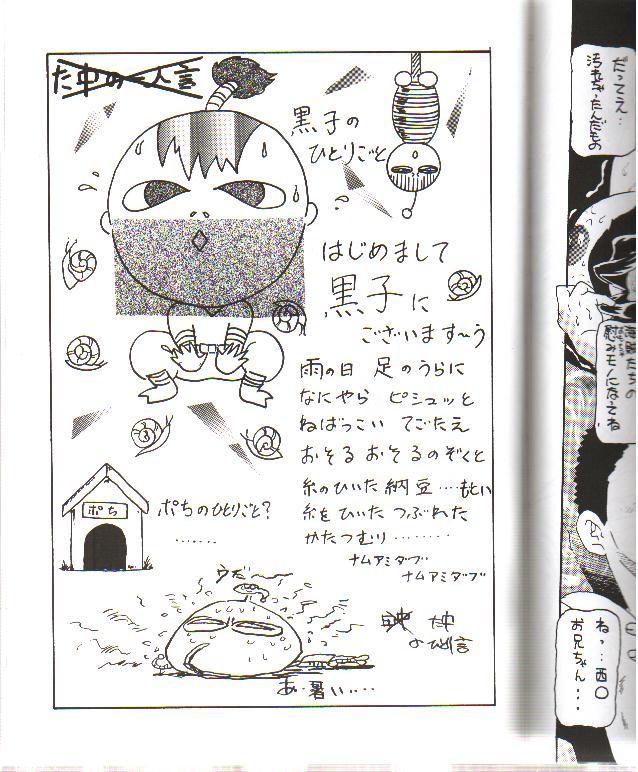 た中の一人言
黒子の
ひとりごと
はじめまして
黒子に
ございます〜う
雨の日 足のうらに
なにやら ピシュッと
ねばっこい てごたえ
おそる おそるのぞくと
糸のひいた 納豆……もとい
糸をひいた つぶれた
かたつむり………
ナムアミダブ
ナムアミダブ
ポち
ポちのひとりごと?
……
うだ〜
た中
のひとり言
あ・暑い……
だってえ…
汚れちゃったんだもの
慰みモノになってね
ねっ…西〇
お兄ちゃん…